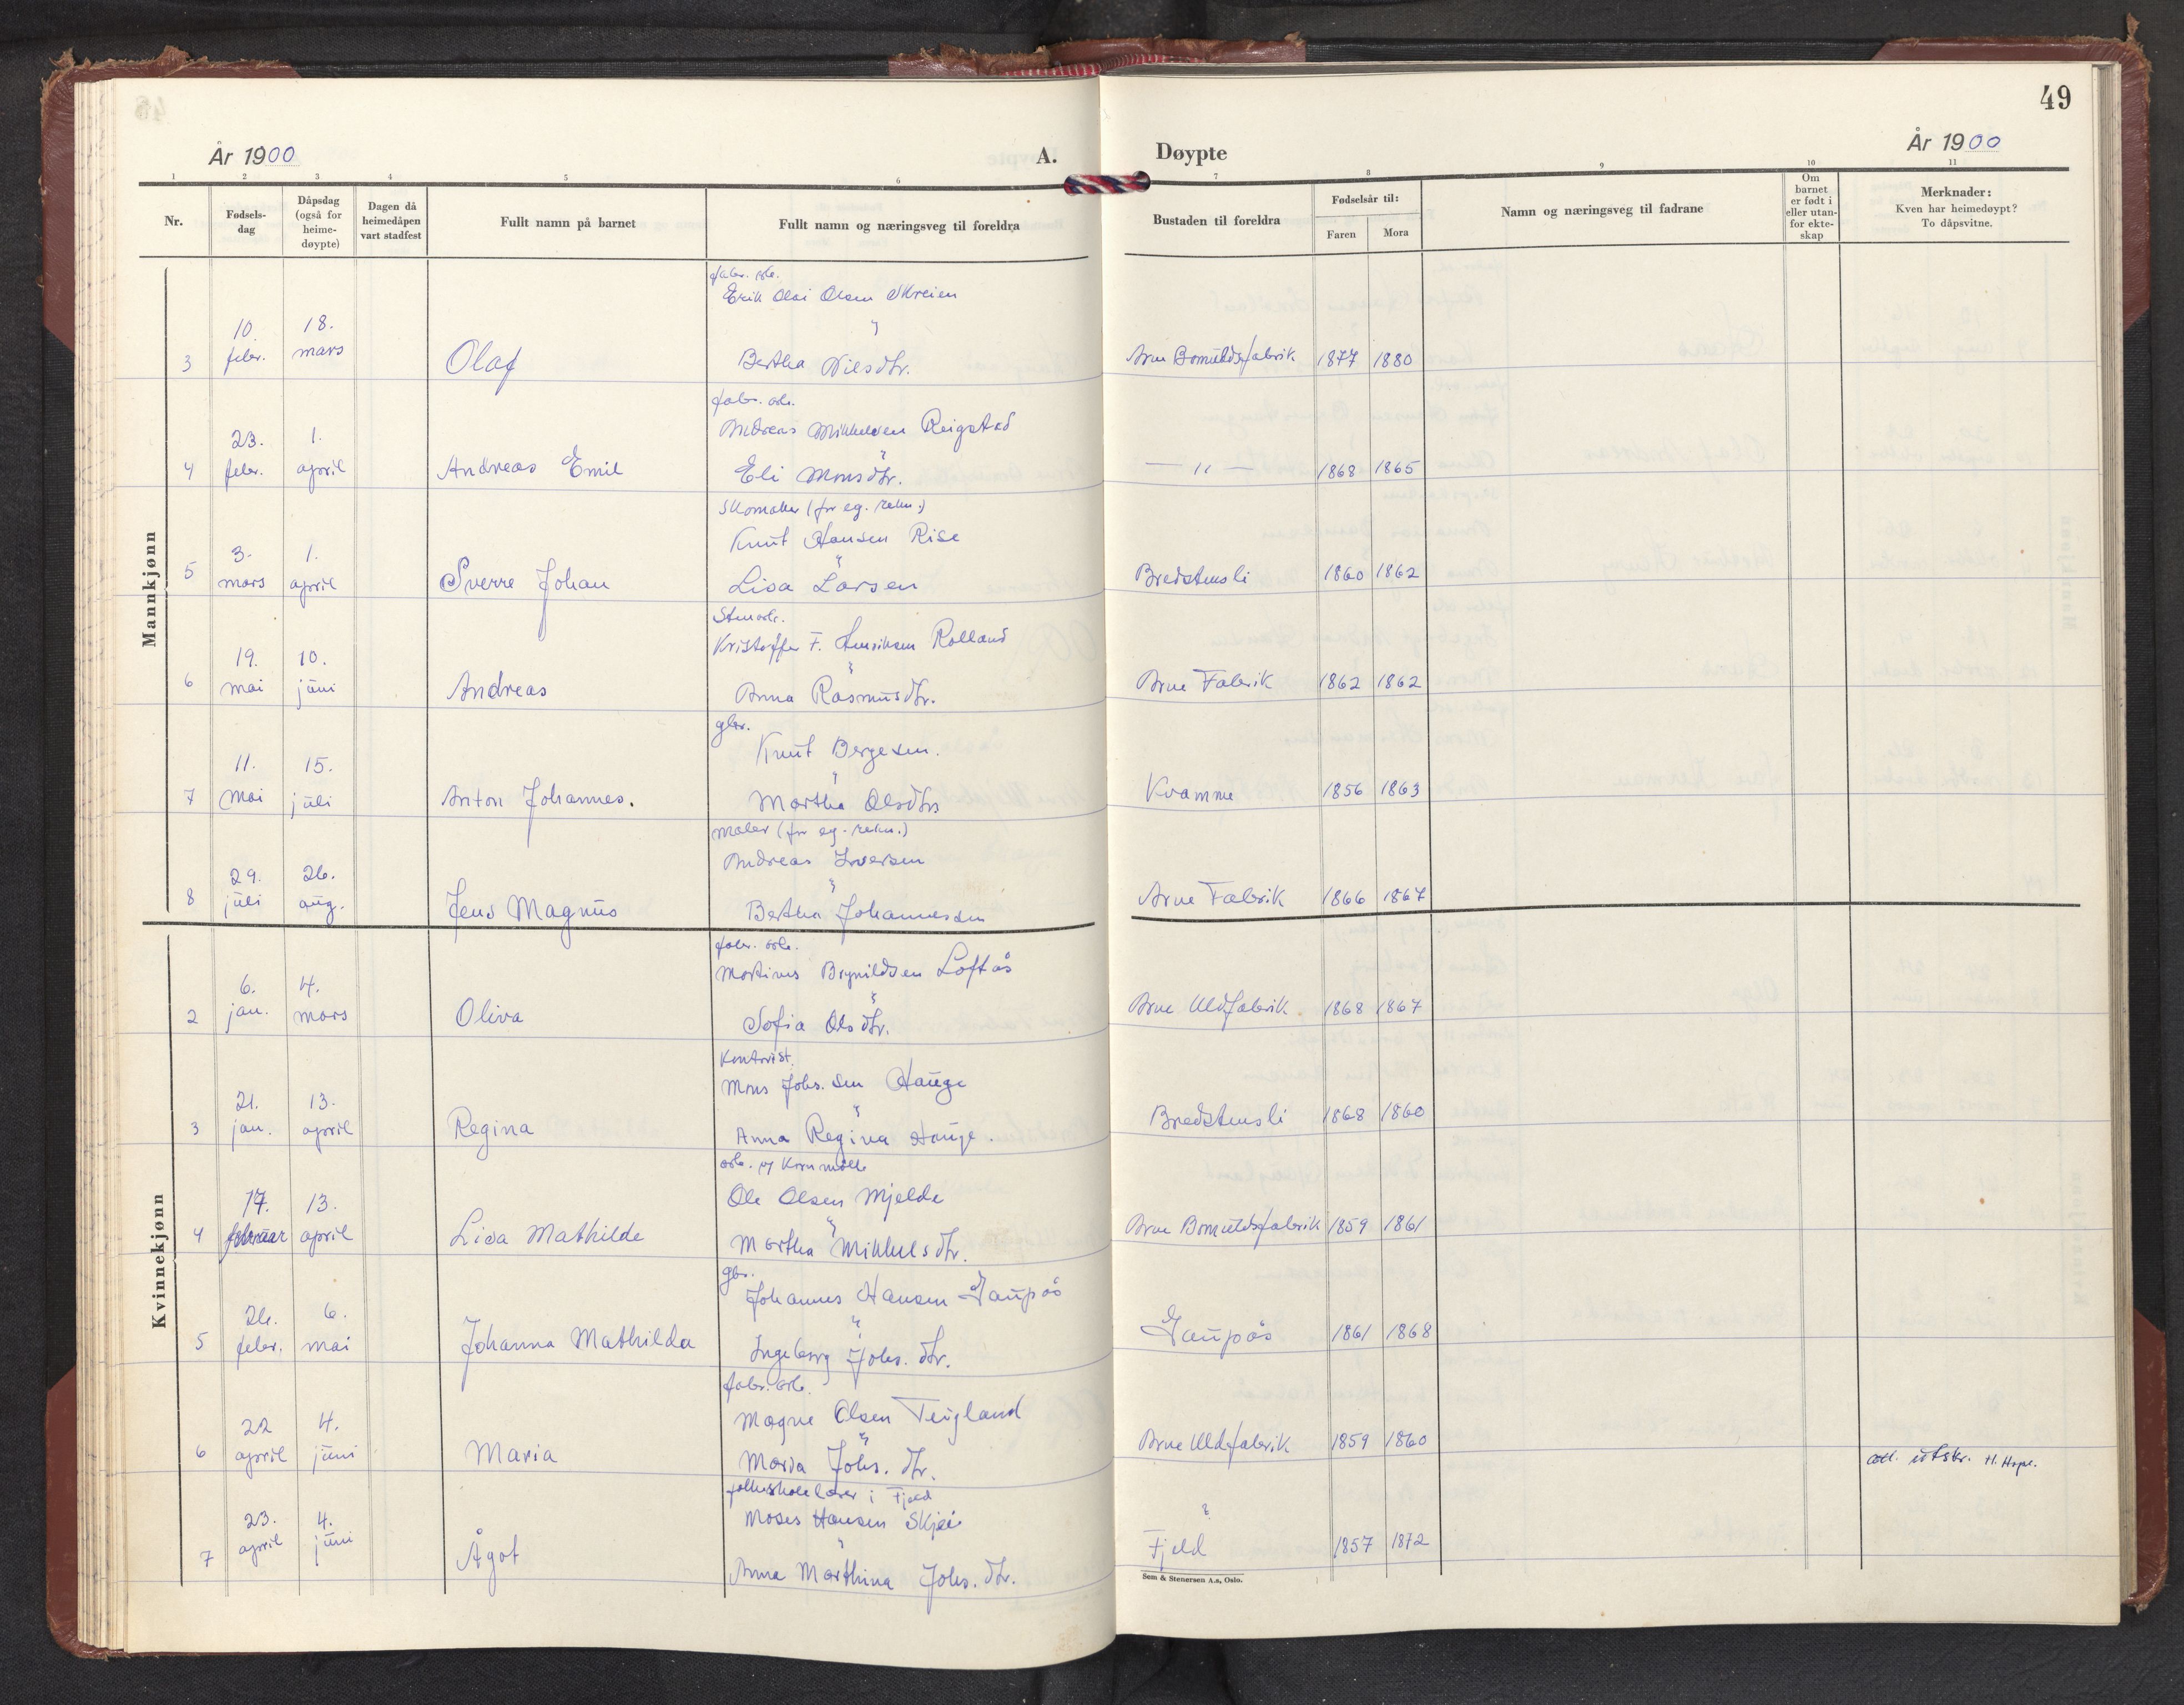 49
År 1900
A.
Døypte
År 1900
1 2 3 4 5 6 7 8 9 10 11
Nr.
Fødsels-
dag
Dåpsdag
(også for
heime-
døypte)
Dagen då
heimedåpen
vart stadfest
Fullt namn på barnet
Fullt namn og næringsveg til foreldra
Bustaden til foreldra
Fødselsår til:
Faren
Mora
Namn og næringsveg til fadrane
Om
barnet
er født i
eller utan-
for ekte-
skap
Merknader:
Kven har heimedøypt?
To dåpsvitne.
Mannkjønn
fabr. arb.
Erik Olai Olsen Skreien
10. 18.
3 febr. mars Olaf Bertha Nilsdtr. Arne Bomuldsfabrik 1877 1880
fabr. arb.
Andreas Mikkelsen Reigstad
23. 1.
4 febr. april Andreas Emil Eli Monsdtr. — " — 1868 1865
Skomaker (for eg. rekn.)
Knut Hansen Rise
3. 1.
5 mars april Sverre Johan Lisa Larsen Bredstensli 1860 1862
Stenarb.
Kristoffer F. Henriksen Rolland
19. 10.
6 mai juni Andreas Anna Rasmusdtr. Arne Fabrik 1862 1862
gbr.
Knut Bergesen.
11. 15.
7 mai juli Anton Johannes. Martha Olsdtr Kvamme 1856 1863
Maler (for eg. rekn.)
Andreas Iversen
29. 26.
8 juli aug. Jens Magnus Bertha Johannessen Arne Fabrik 1866 1867
Kvinnekjønn
fabr. arb.
Martinus Brynildsen Loftås
6. 4.
2 jan. mars Oliva Sofia Olsdtr. Arne Uldfabrik 1868 1867
Kontorist.
Mons Johs. sen Hauge
21. 13.
3 jan. april Regina Anna Regina Hauge. Bredstensli 1868 1860
arb. på Kornmølle
Ole Olsen Mjelde
17. 13.
4 februar april Lisa Mathilde Martha Mikkelsdtr. Arne Bomuldsfabrik 1859 1861
gbr.
Johannes Hansen Gaupås
26. 6.
5 febr. mai Johanna Mathilda Ingeborg Johs. dtr. Gaupås 1861 1868
fabr. arb.
Magne Olsen Teigland
22 4.
6 april juni Maria Maria Johs. dtr. Arne Uldfabrik 1859 1860 att. utskr. H. Hope.
folkeskolelærer i Fjeld
Moses Hansen Skjei
23. 4.
7 april juni Ågot Anna Marthina Johs. dtr. Fjeld 1857 1872
Sem & Stenersen A.s, Oslo.